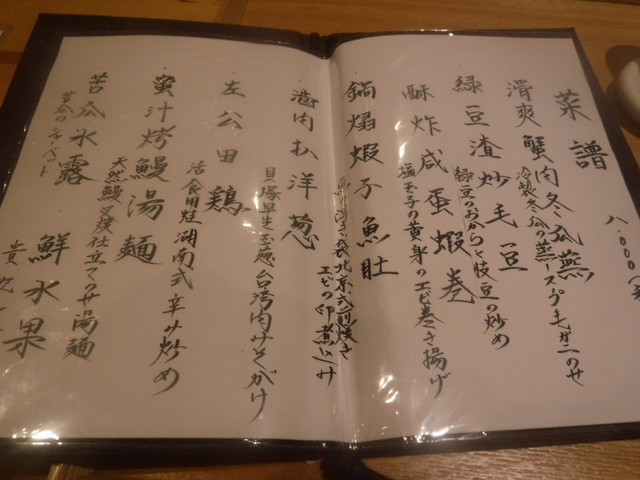 菜譜
八.000
滑爽蟹肉冬瓜燕
冷製冬瓜の燕ースープ毛ガニのせ
緑豆渣炒毛豆
緑豆のおからと枝豆の炒め
酥炸咸蛋蝦巻
塩玉子の黄身のエビ巻き揚げ
鍋焔蝦子魚肚
北京式煎り焼き
エビの卵煮込み
滷肉払洋葱
貝塚早生玉葱台湾肉みそがけ
左公田鶏
活食用蛙湖南式辛み炒め
蜜汁烤鰻湯麺
天然鰻叉焼仕立てのせ湯麺
苦瓜氷露
苦瓜のシャーベット
鮮水果